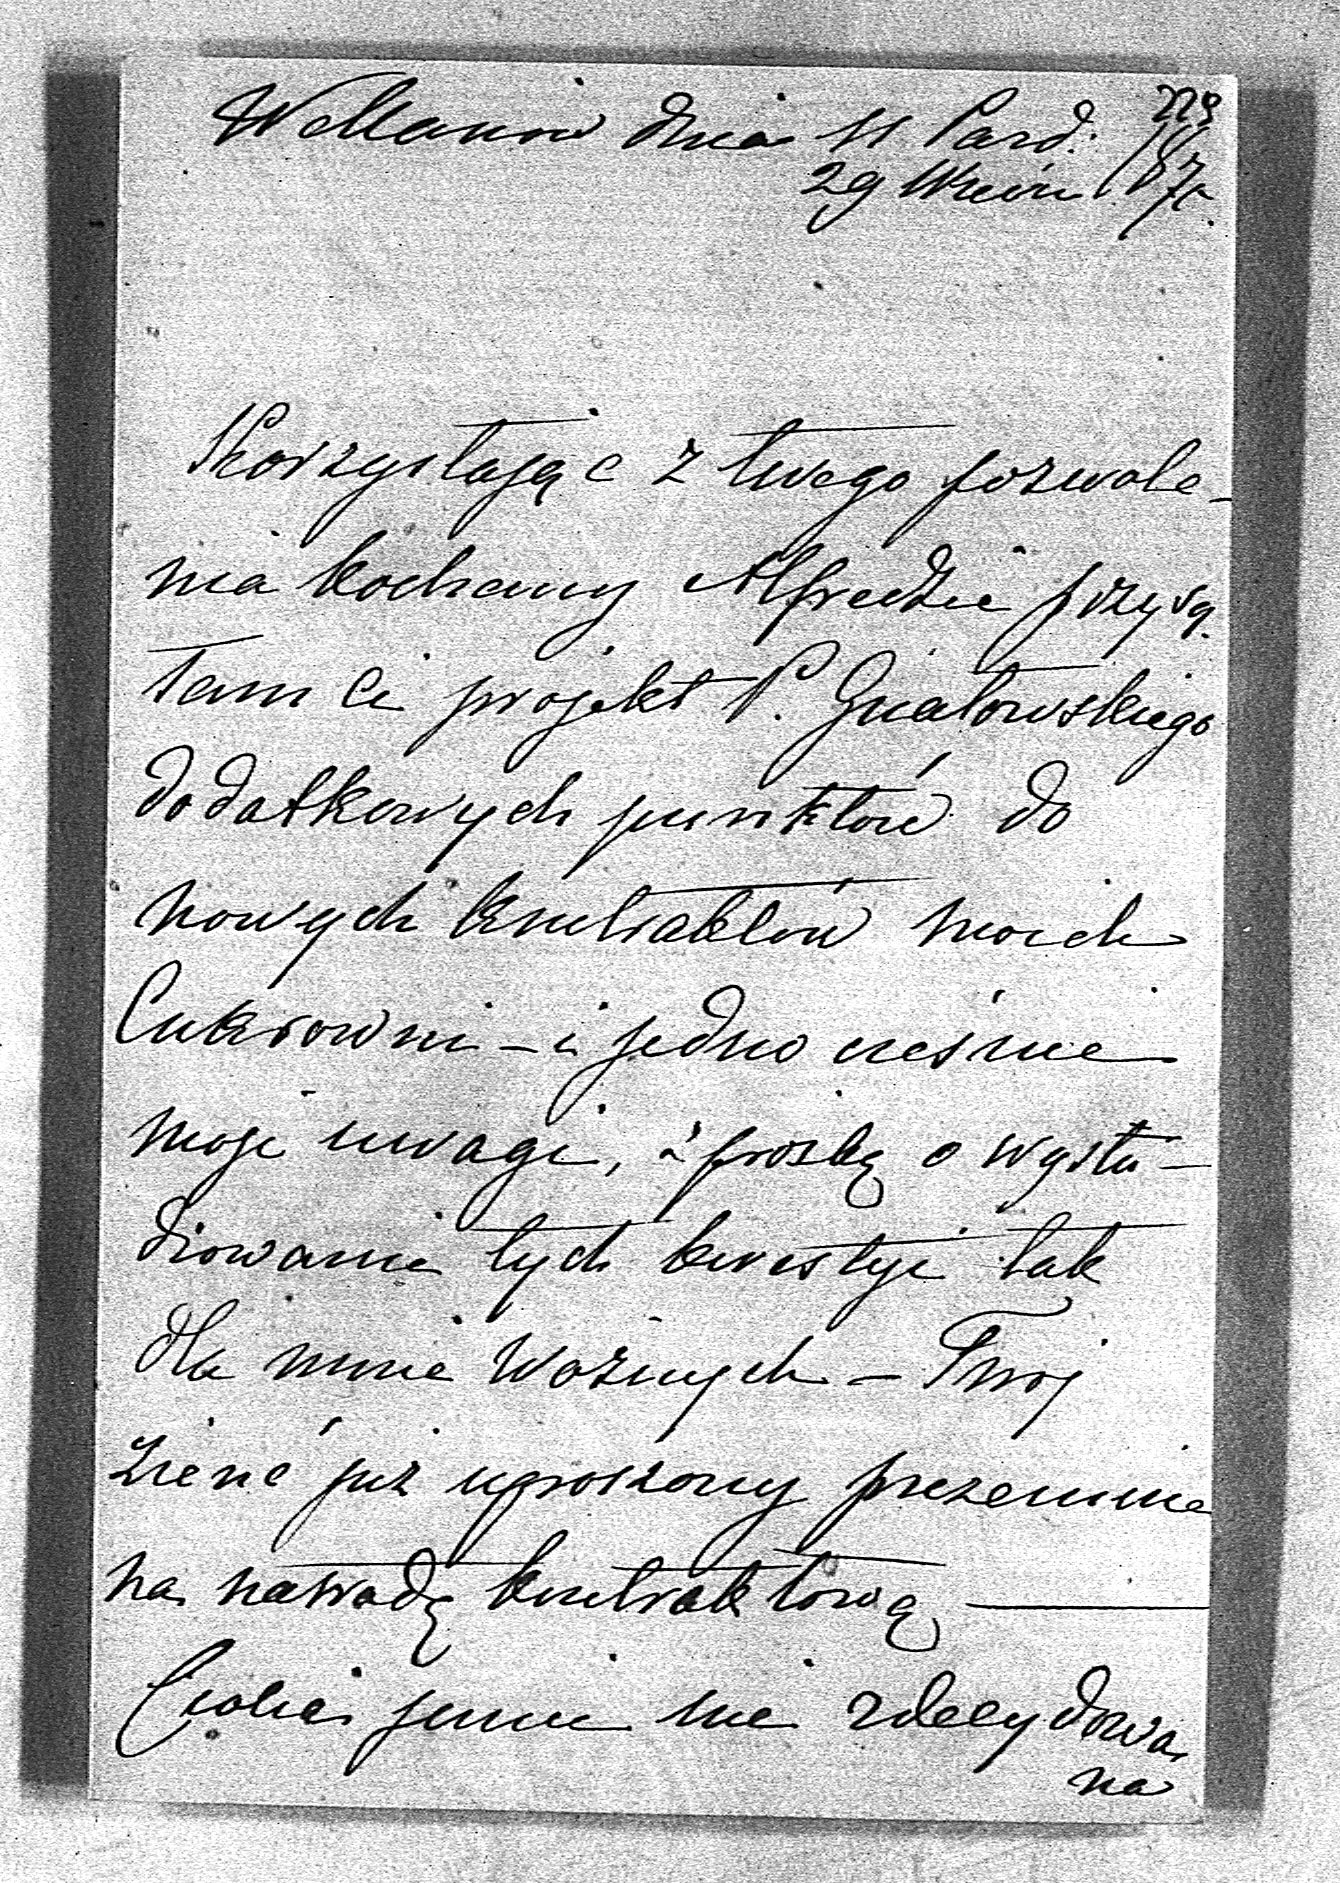 Willanow dnia 11 Pazd: 228
29 Wrześn. 187 r.
Skorzystając z twego pozwole-
nia kochany Alfredzie przysy
łam Ci projekt P. Gnatowskiego
dodatkowych punktów do
nowych kontraktów moich
Cukrowni – i jedno cześnie
moje uwagi, i prośbę o wystu-
diowanie tych kwestyi tak
dla mnie ważnych – Twój
Zienć już uproszony przezemnie
na naradę kontraktową —
jeszcze nie zdecydowa
na